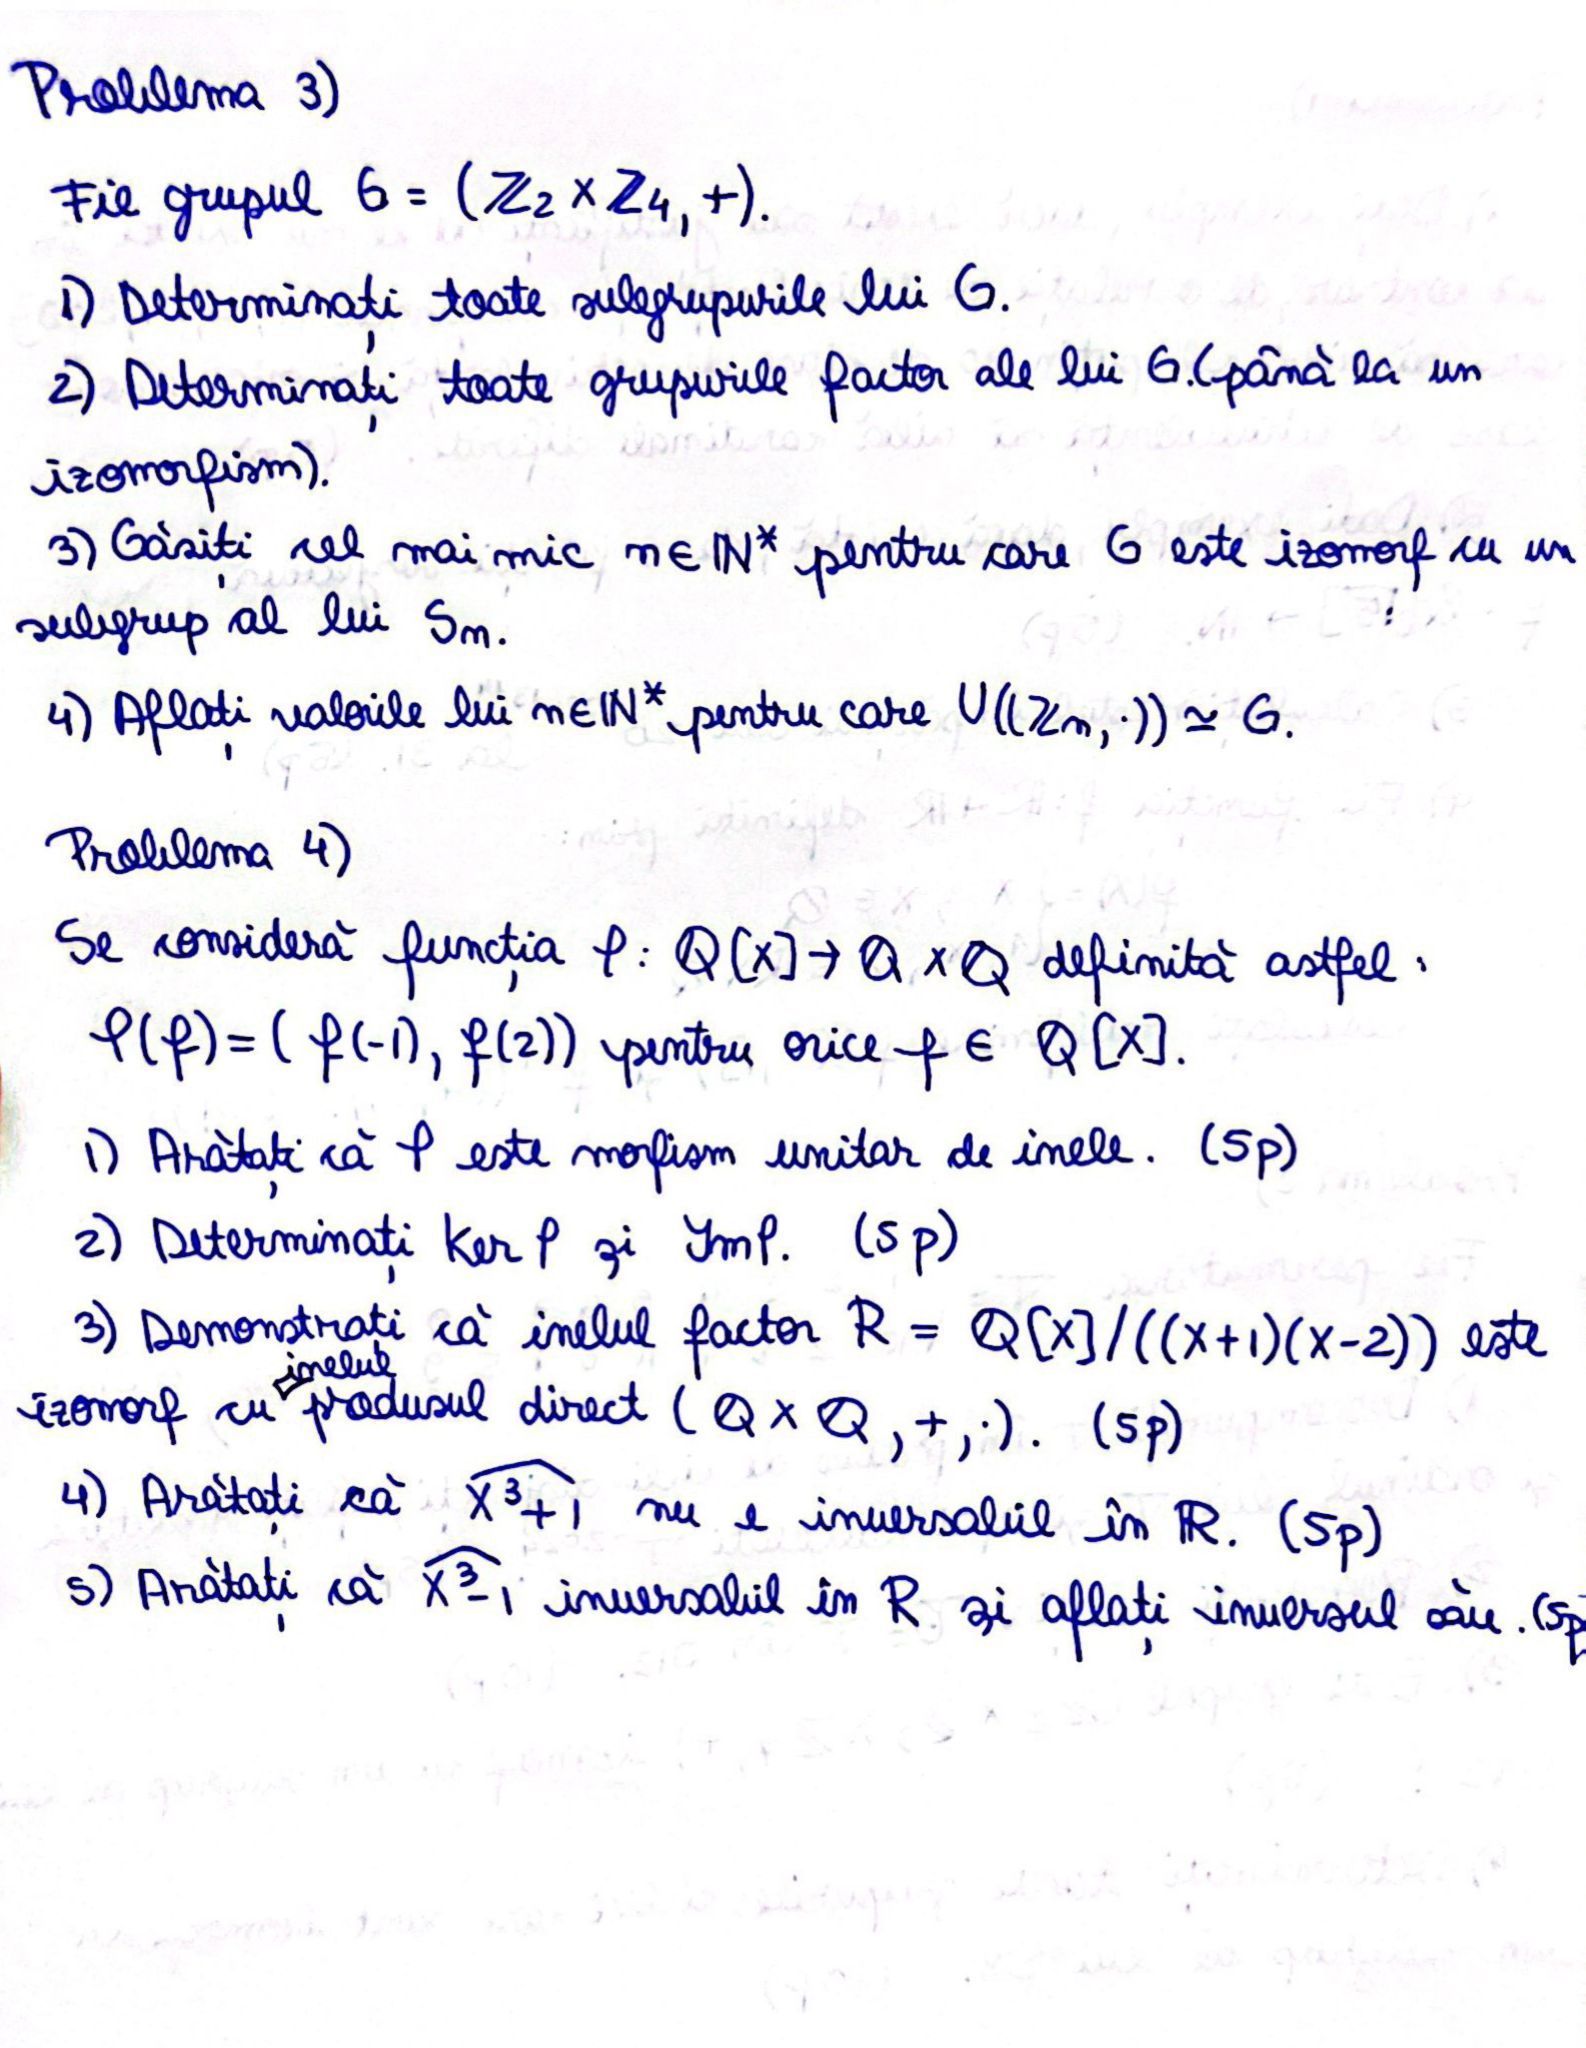 Problema 3)
Fie grupul G = (ℤ₂ × ℤ₄, +).
1) Determinați toate subgrupurile lui G.
2) Determinați toate grupurile factor ale lui G.(până la un
izomorfism).
3) Găsiți cel mai mic n∈ℕ* pentru care G este izomorf cu un
subgrup al lui Sₙ.
4) Aflați valorile lui n∈ℕ* pentru care U((ℤₙ, ·)) ≃ G.
Problema 4)
Se consideră funcția φ: ℚ[X] → ℚ × ℚ definită astfel:
φ(f) = (f(-1), f(2)) pentru orice f ∈ ℚ[X].
1) Arătați că φ este morfism unitar de inele. (5p)
2) Determinați Ker φ și Im φ. (5p)
3) Demonstrați că inelul factor R = ℚ[X]/((X+1)(X-2)) este
izomorf cu inelul produsul direct (ℚ × ℚ, +, ·). (5p)
4) Arătați că \widehat{X³+1} nu e inversabil în R. (5p)
5) Arătați că \widehat{X³-1} inversabil în R și aflați inversul său. (5p